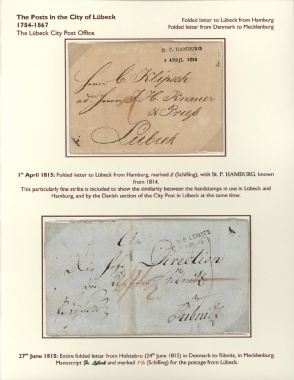 The Posts in the City of Lübeck
1784-1867
The Lübeck City Post Office
Folded letter to Lübeck from Hamburg
Folded letter from Denmark to Mecklenburg
St. P. HAMBURG
1 APRIL 1815
Herrn C Klipsch
ad. Herrn J. H. Knauer
& Preuß
Lübeck
1st April 1815: Folded letter to Lübeck from Hamburg, marked 8 (Schilling), with St. P. HAMBURG, known
from 1814.
This particularly fine strike is included to show the similarity between the handstamps in use in Lübeck and
Hamburg, and by the Danish section of the City Post in Lübeck at the same time.
An
Die
Direction
27th June 1815: Entire folded letter from Holstebro (24th June 1815) in Denmark to Ribnitz, in Mecklenburg.
Manuscript Fr. Lübeck and marked 1½ (Schilling) for the postage from Lübeck.